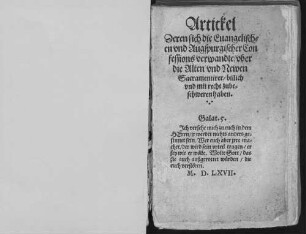 Artickel
Deren sich die Euangelisch-
en vnd Augspurgischer Con
fessions verwandte/vber
die Alten vnd Newen
Sacramentirer/ billich
vnd mit recht zube-
schweren haben.
Galat. 5.
Ich versehe mich zu euch in dem
HErrn/ jr werdet nichts anders ge-
sinnet sein. Wer euch aber jrre ma-
chet, der wird sein vrteil tragen/ er
sey wer er wölle. Wolte Gott/ das
sie auch außgerottet würden/ die
euch verstören.
M. D. LXVII.